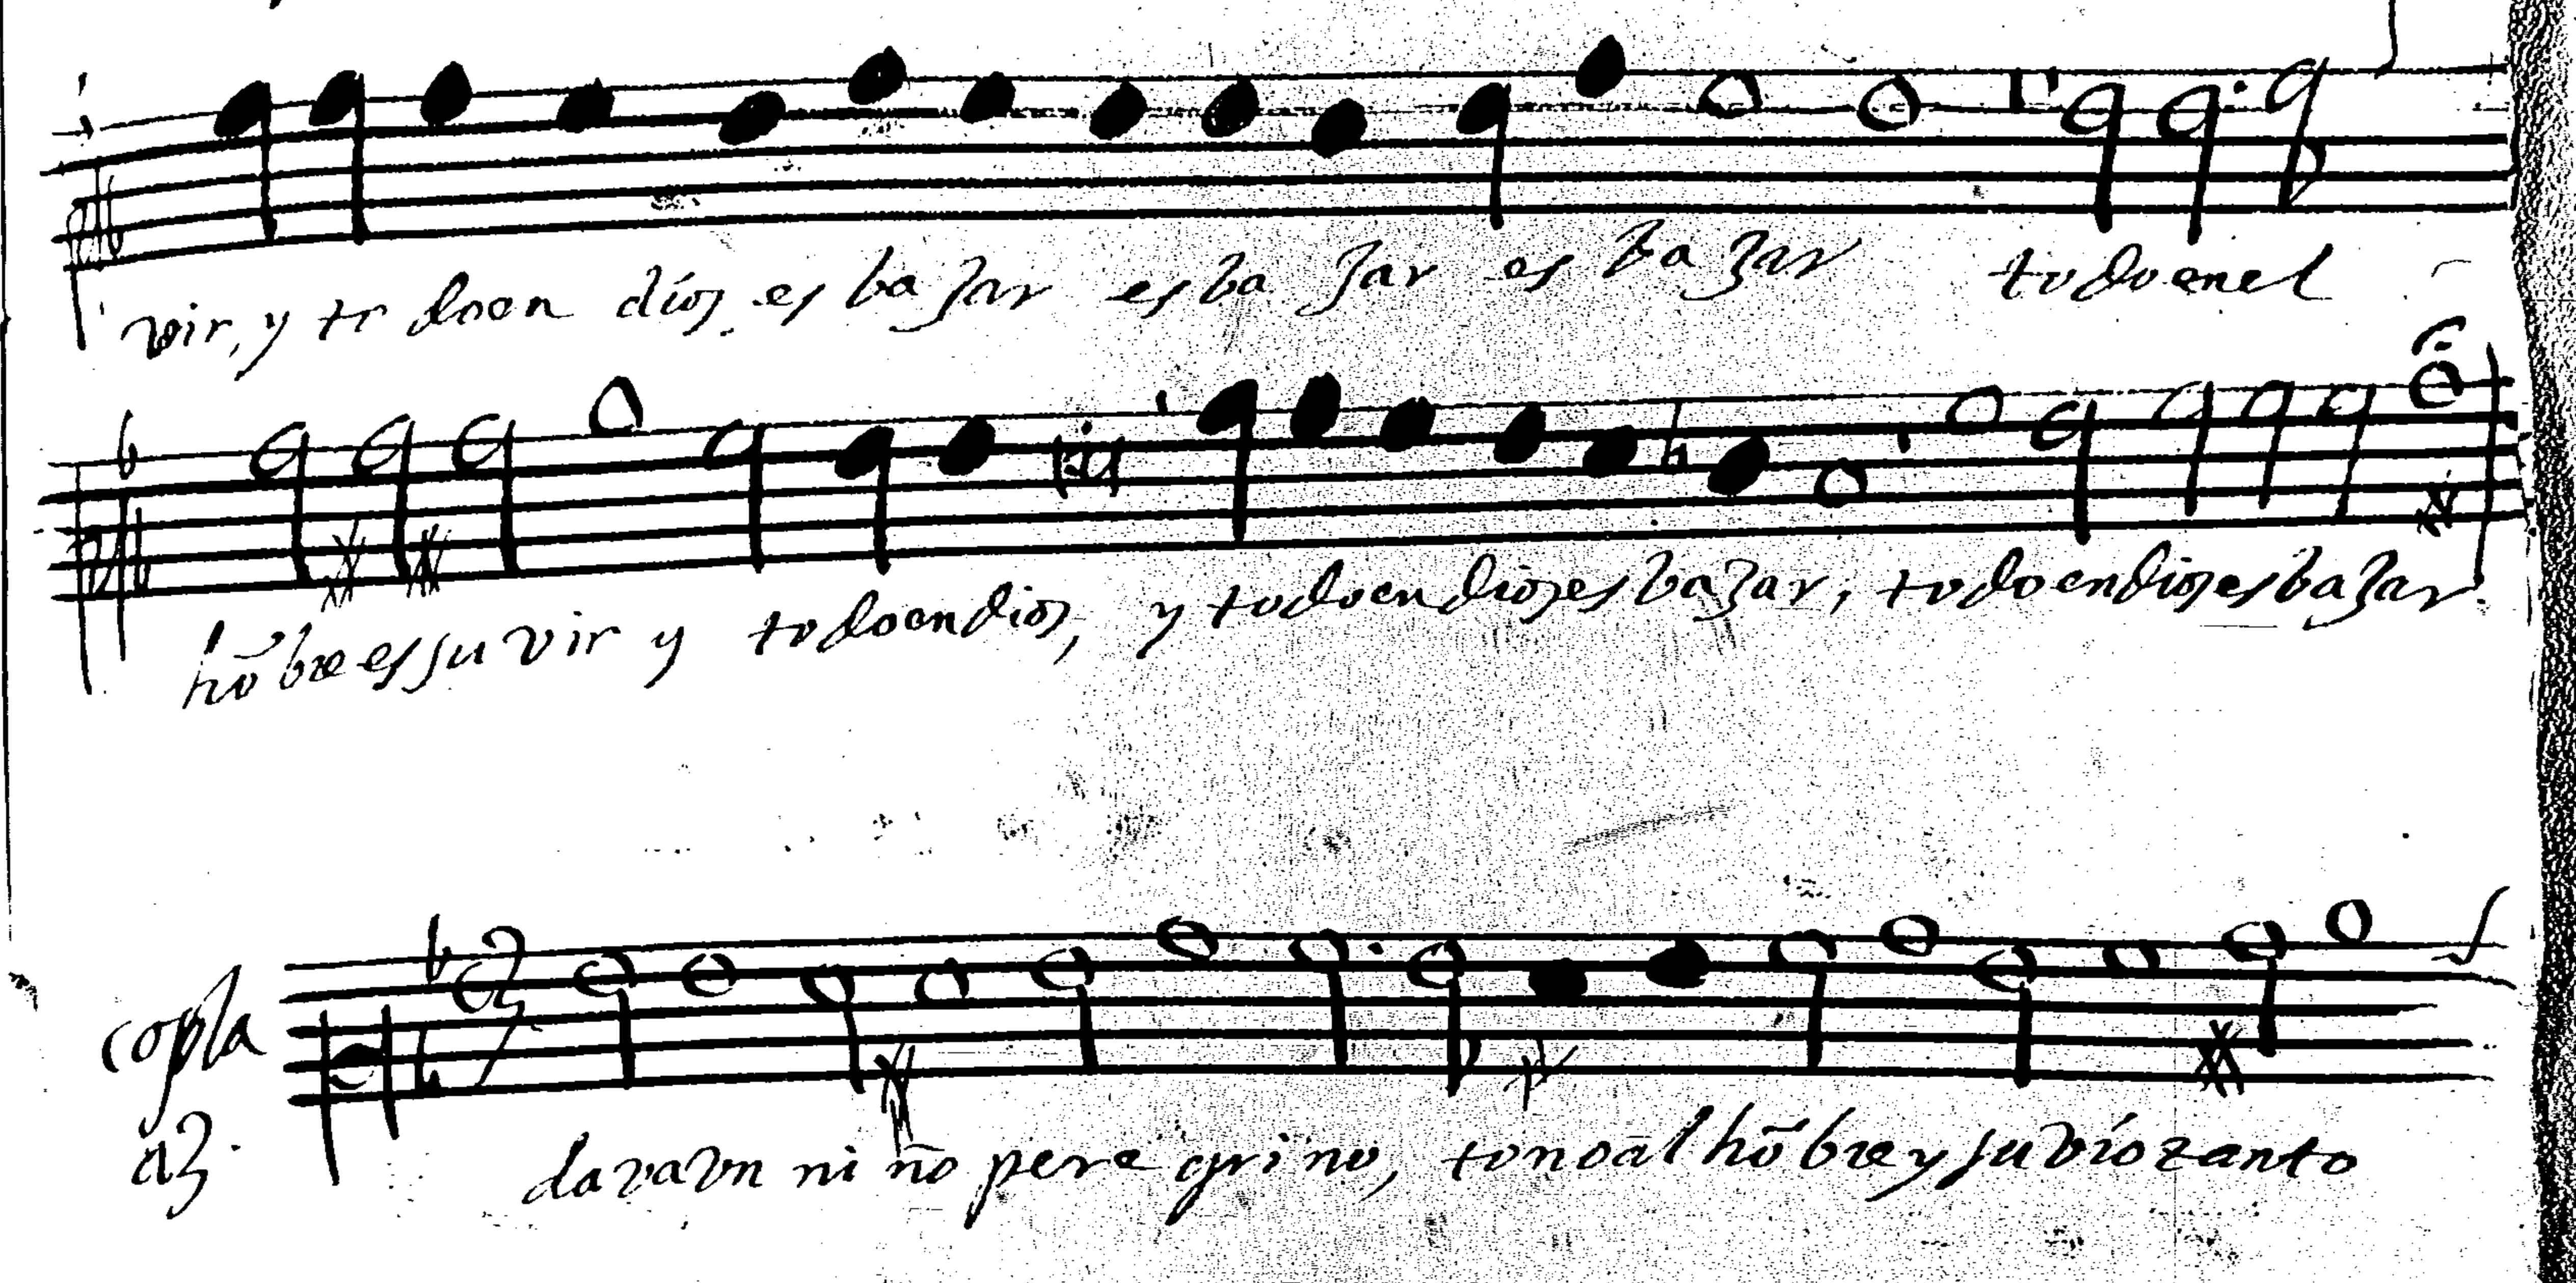 vir, y to doen dios es ba jar es ba jar es ba jar todo enel
hõ bre es su vir y todo en dios, y todo en dios es bajar, todo en dios es bajar.
copla
a 3.
dava vn ni ño pere grino, tono al hõ bre y su vio tanto